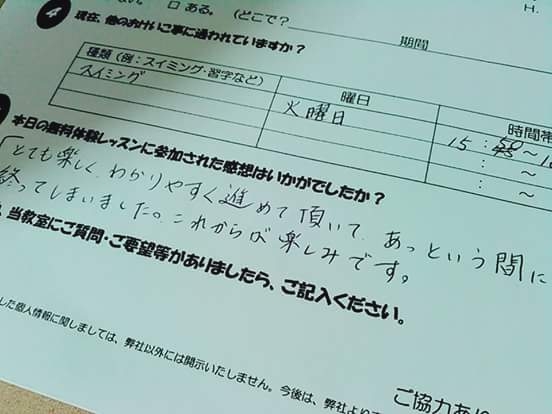 ない。 □ ある。 (どこで?
期間
H.
4 現在、他のおけいこ事に通われていますか?
種類(例:スイミング・習字など)
曜日
時間帯
スイミング
火曜日
15 : 50 ~ 1
: ~
: ~
本日の無料体験レッスンに参加された感想はいかがでしたか?
とても楽しく、わかりやすく進めて頂いて、あっという間に
終ってしまいました。これからが楽しみです。
当教室にご質問・ご要望等がありましたら、ご記入ください。
した個人情報に関しましては、弊社以外には開示いたしません。今後は、弊社より
ご協力あり